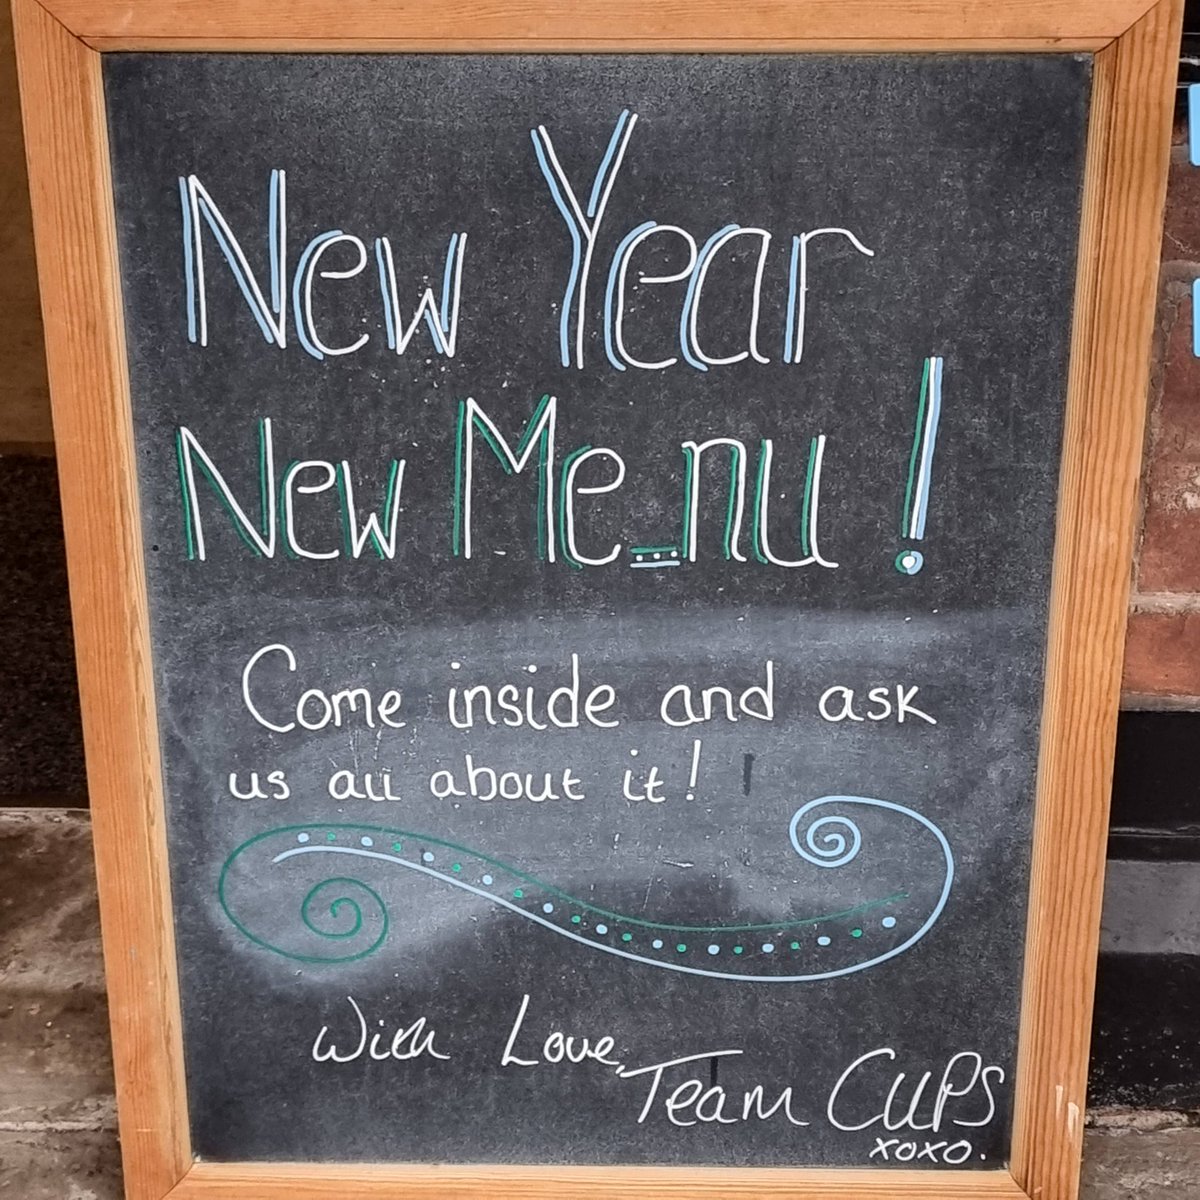 New Year
New Menu!
Come inside and ask
us all about it!
With Love,
Team CUPS
xoxo.